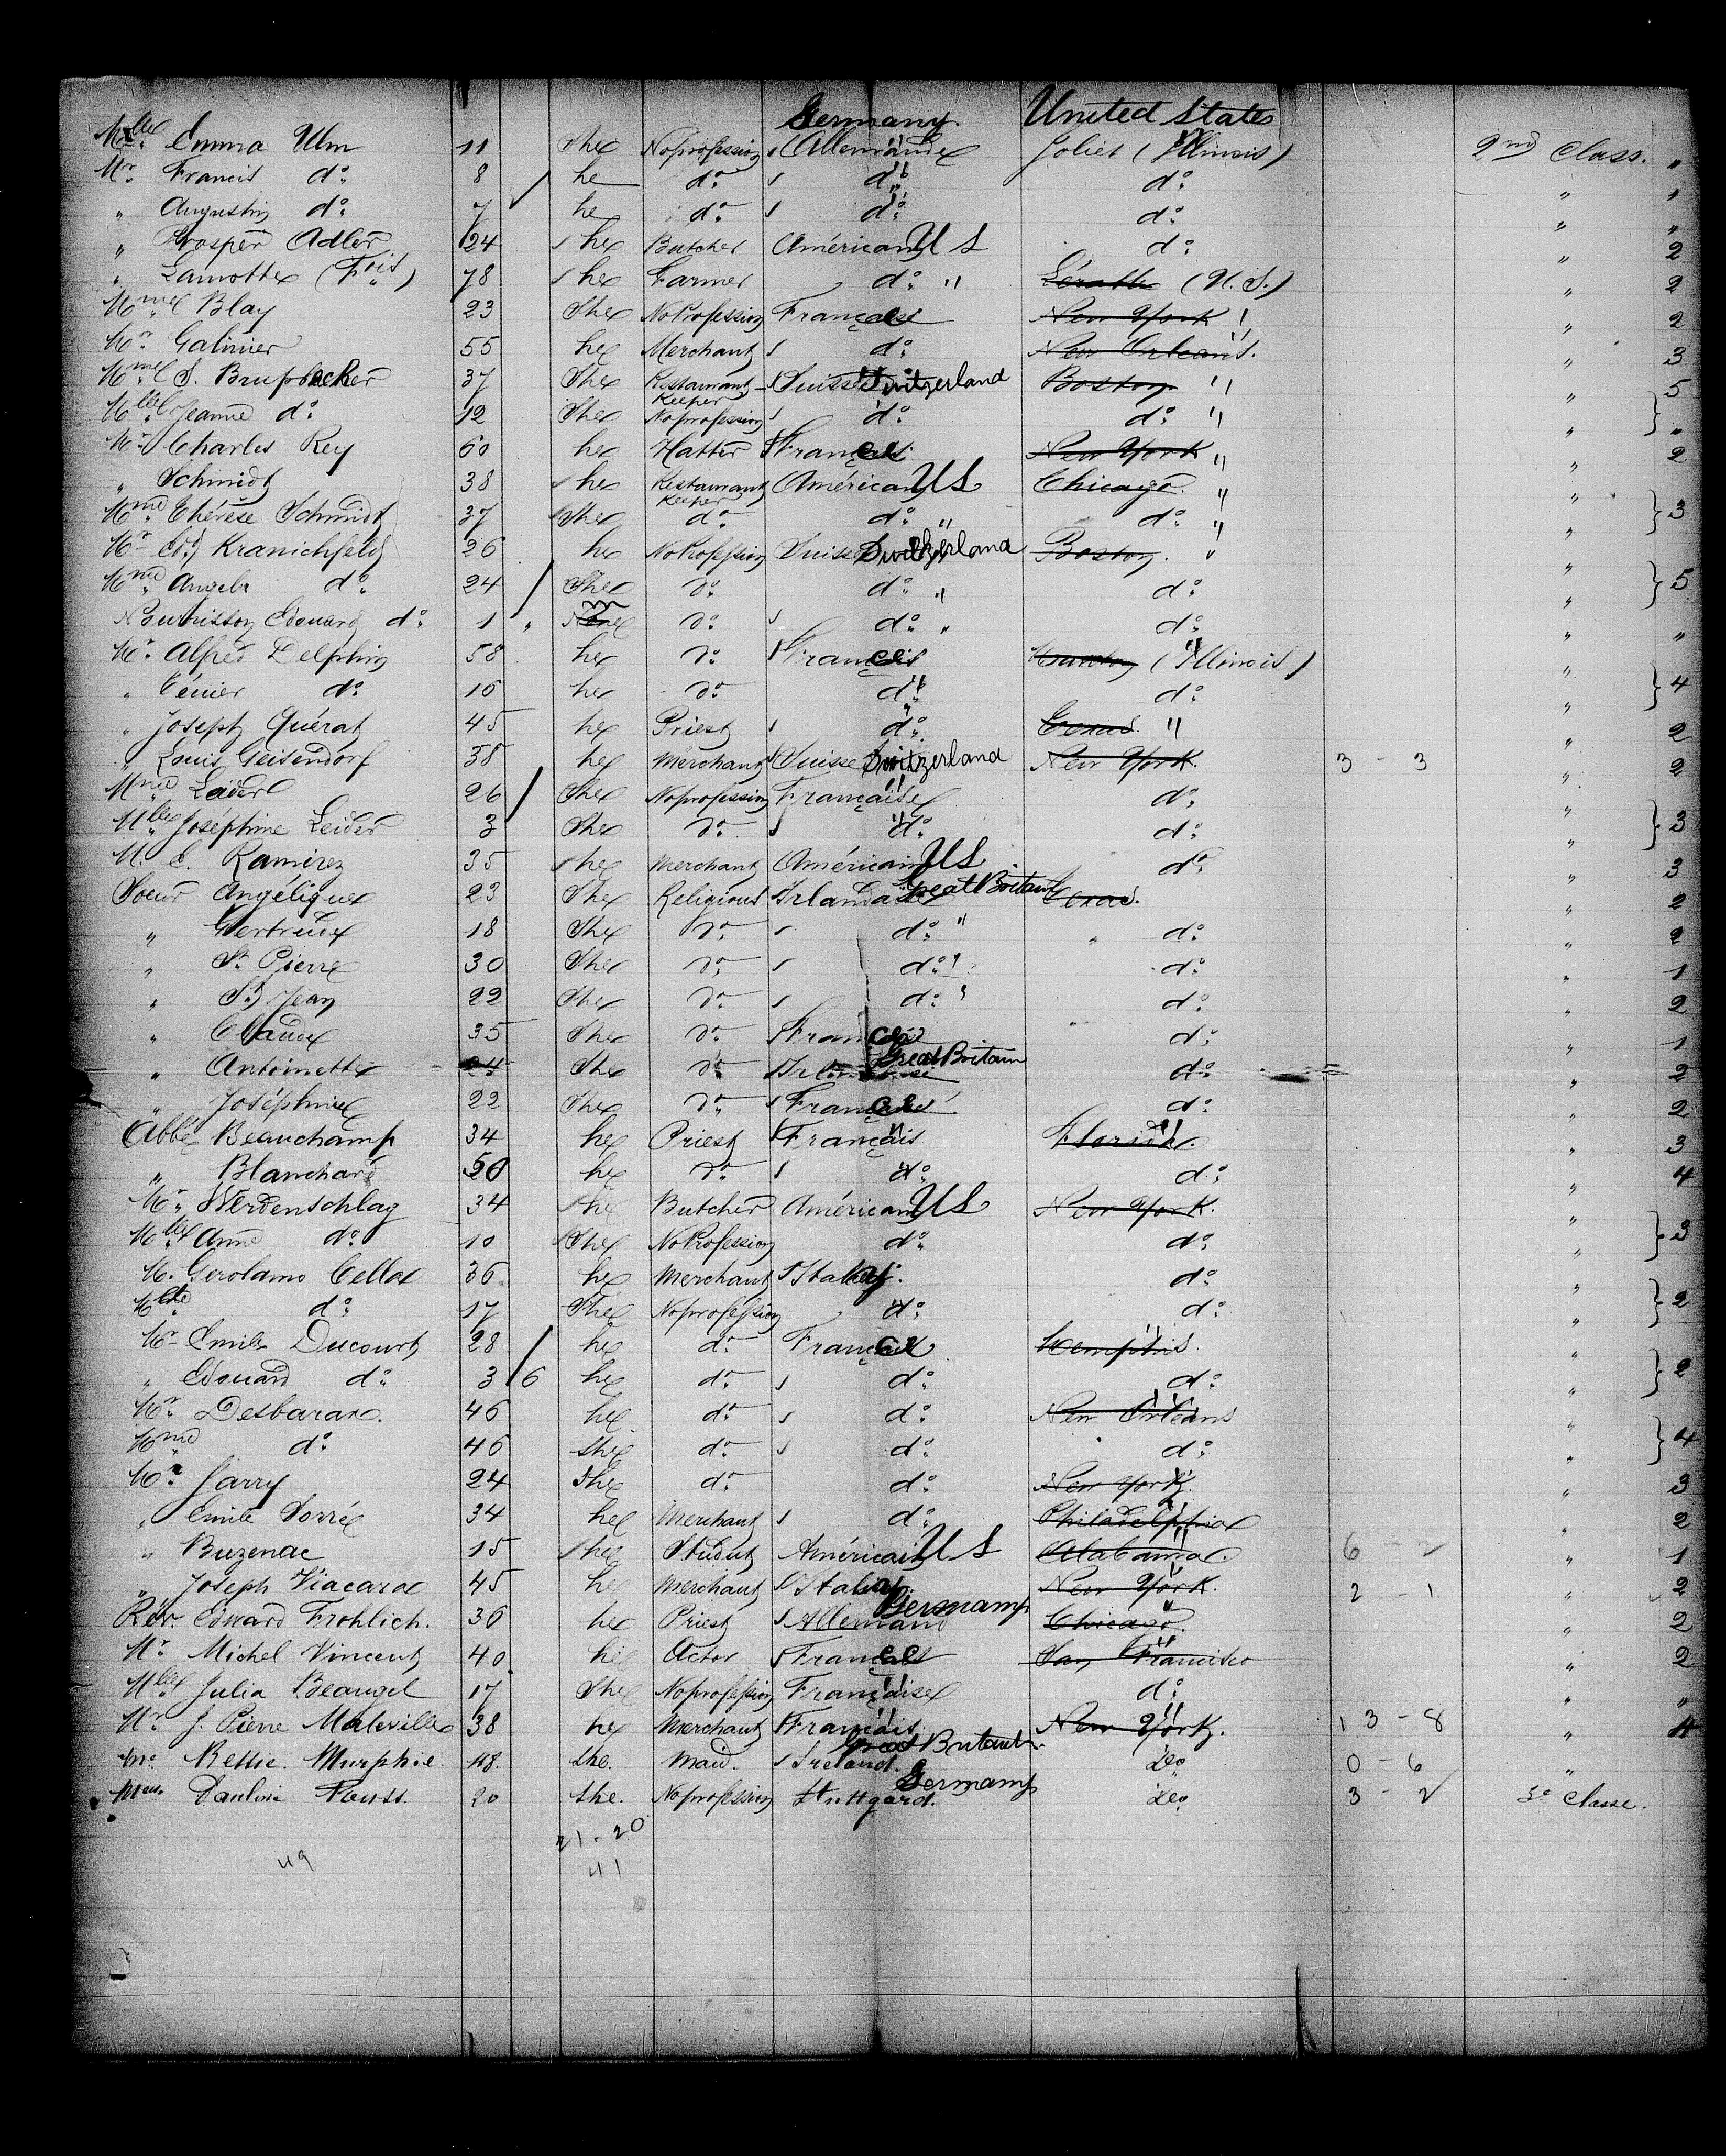 Germany. United States
Mlle Emma Ulm 11 She No profession Allemande Joliet (Illinois) 2nd Class. "
Mr. Francis do 8 he do do do " 1
" Augustin do 7 he do do do " "
" Prosper Adler 24 he Butcher Américain U S do " 2
" Lamotte (Fois) 78 he Farmer do " (U. S.) " 2
Mme Blay 23 She No Profession Française New York " " 2
Mr. Galinier 55 he Merchant do New Orleans. " 3
Mme S. Brupbacker 37 She Restaurant Keeper Suisse Switzerland Boston " " 5
Mlle Jeanne do 12 She No profession do do " " "
Mr. Charles Rey 60 he Hatter France New York " " 2
" Schmidt 38 he Restaurant Keeper Américain U S Chicago. " "
Mme Thérèse Schmidt 37 She do do " do " " 3
Mr Ed. Kranichfeld 26 he No Profession Suisse Switzerland Boston. " "
Mme Angela do 24 She do do " do " 5
Nourrisson Edouard do 1 " do do " do " "
Mr. Alfred Delphin 58 he do France (Illinois) "
" do 16 he do do " do " 4
" Joseph Quérat 45 he Priest do Texas. " " 2
" Louis Geisendorf 38 he Merchant Suisse Switzerland New York. 3 - 3 " 2
Mme Leider 26 She No profession Française do "
Mlle Joséphine Leider 3 She do do do " 3
M. E. Ramirez 35 he Merchant Américain U S do " 3
Soeur Angélique 23 She Religious Irlandaise Great Britain Texas. " 2
" Gertrude 18 She do do " " do " 2
" St. Pierre 30 She do do " do " 1
" St. Jean 22 She do do " do " 2
" Claude 35 She do France do " 1
" Antoinette 24 She do Great Britain do " 2
" Joséphine 22 She do France do " 2
Abbé Beauchamp 34 he Priest Français Florida. " 3
" Blanchard 50 he do do do " 4
Mr. Werdenschlag 34 he Butcher Américain U S New York. "
Mlle Anne do 10 She No Profession do do " 3
M. Gerolamo Cella 36 he Merchant Italy. do "
do 17 She No profession do do " 2
Mr Emile Ducourt 28 he do France Memphis. "
" Edouard do 3 6 he do do do " 2
Mr. Desbarax 46 he do do New Orleans "
Mme do 46 she do do do " 4
Mr. Jarry 24 he do do New York. " 3
" Emile Sorré 34 he Merchant do Philadelphia " 2
" Buzenac 15 he Student Américain U S Alabama. 6 - 2 " 1
" Joseph Viacara 45 he Merchant Italy New York. 2 - 1 " 2
Rév. Edward Frohlich. 36 he Priest Allemand Germany Chicago. " 2
Mr. Michel Vincent 40 he Actor France San Francisco " 2
Mlle Julia Beaugel 17 She No profession Française do " "
Mr. J. Pierre Maleville 38 he Merchant Français New York. 13 - 8 " 4
Bettie Murphie 48. she. maid. Ireland. Great Britain do 0 - 6 "
Pauline 20 she. No profession Stuttgard. Germany do 3 - 2 3e Classe.
21 - 20
49 41